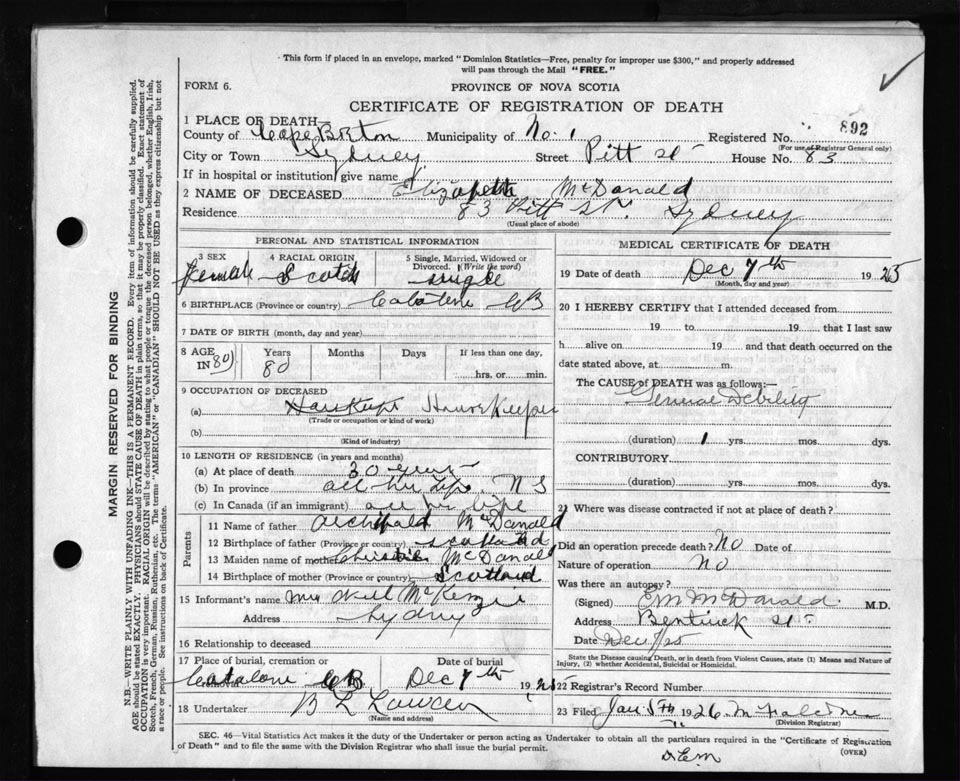 This form if placed in an envelope, marked "Dominion Statistics—Free, penalty for improper use $300," and properly addressed
will pass through the Mail "FREE."
FORM 6.
PROVINCE OF NOVA SCOTIA
CERTIFICATE OF REGISTRATION OF DEATH
1 PLACE OF DEATH—
County of Cape Breton Municipality of No. 1 Registered No. 892
(For use of Registrar General only)
City or Town Sydney Street Pitt St House No. 83
If in hospital or institution give name
2 NAME OF DECEASED Elizabeth McDanald
Residence 83 Pitt St. Sydney
(Usual place of abode)
PERSONAL AND STATISTICAL INFORMATION
3 SEX 4 RACIAL ORIGIN 5 Single, Married, Widowed or Divorced. (Write the word)
Female Scotch single
6 BIRTHPLACE (Province or country) Catalone CB
7 DATE OF BIRTH (month, day and year)
8 AGE IN 80 Years 80 Months Days If less than one day,
hrs. or min.
9 OCCUPATION OF DECEASED
(a) House Keeper
(Trade or occupation or kind of work)
(b)
(Kind of industry)
10 LENGTH OF RESIDENCE (in years and months)
(a) At place of death 30 years
(b) In province all her life N S
(c) In Canada (if an immigrant) all her life
Parents
11 Name of father Archibald McDanald
12 Birthplace of father (Province or country) Scotland
13 Maiden name of mother Christie McDanald
14 Birthplace of mother (Province or country) Scotland
15 Informant's name Mrs Neil McKenzie
Address Sydney
16 Relationship to deceased
17 Place of burial, cremation or removal Date of burial
Catalone CB Dec 7th 1925
18 Undertaker B L
(Name and address)
MEDICAL CERTIFICATE OF DEATH
19 Date of death Dec 7th 1925
(Month, day and year)
20 I HEREBY CERTIFY that I attended deceased from
19 to 19 that I last saw
h alive on 19 and that death occurred on the
date stated above, at m.
The CAUSE OF DEATH was as follows:—
General Debility
(duration) 1 yrs. mos. dys.
CONTRIBUTORY
(duration) yrs. mos. dys.
21 Where was disease contracted if not at place of death?
Did an operation precede death? No Date of
Nature of operation No
Was there an autopsy?
(Signed) McDonald M.D.
Address Bentinck St
Date
State the Disease causing Death, or in death from Violent Causes, state (1) Means and Nature of
Injury, (2) whether Accidental, Suicidal or Homicidal.
22 Registrar's Record Number
23 Filed Jan 5th 1926
(Division Registrar)
SEC. 46—Vital Statistics Act makes it the duty of the Undertaker or person acting as Undertaker to obtain all the particulars required in the "Certificate of Registration
of Death" and to file the same with the Division Registrar who shall issue the burial permit.
(OVER)
MARGIN RESERVED FOR BINDING
N.B.—WRITE PLAINLY WITH UNFADING INK—THIS IS A PERMANENT RECORD. Every item of information should be carefully supplied.
AGE should be stated EXACTLY. PHYSICIANS should STATE CAUSE OF DEATH in plain terms, so that it may be properly classified. Exact statement of
OCCUPATION is very important. RACIAL ORIGIN will be described by stating to what people or tongue the deceased person belonged, whether English, Irish,
Scotch, French, German, Russian, Ruthenian, etc. The terms "AMERICAN" or "CANADIAN" SHOULD NOT BE USED as they express citizenship but not
a race or people. See instructions on back of Certificate.